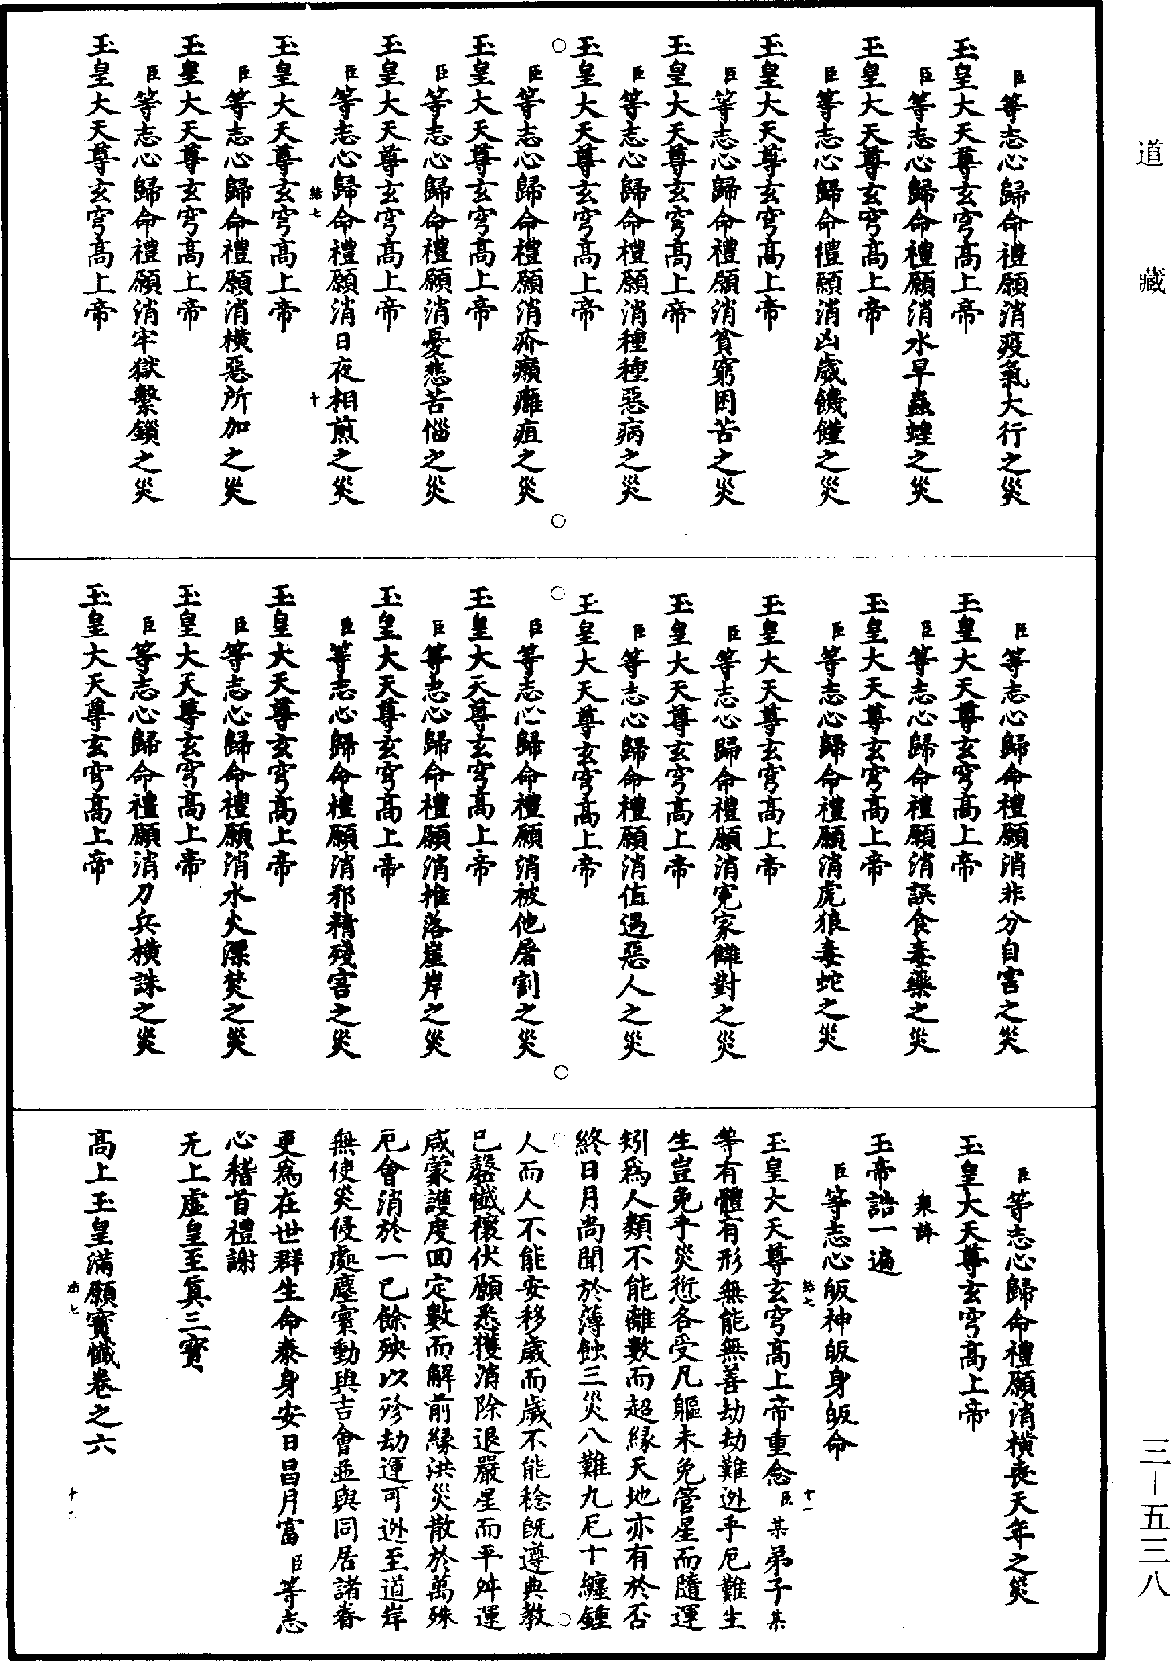 道藏
臣等志心歸命禮願消疫氣大行之災
玉皇大天尊玄穹高上帝
臣等志心歸命禮願消水旱蟲蝗之災
玉皇大天尊玄穹高上帝
臣等志心歸命禮願消凶歲饑饉之災
玉皇大天尊玄穹高上帝
臣等志心歸命禮願消貧窮困苦之災
玉皇大天尊玄穹高上帝
臣等志心歸命禮願消種種惡病之災
玉皇大天尊玄穹高上帝
臣等志心歸命禮願消疥癩癰疽之災
玉皇大天尊玄穹高上帝
臣等志心歸命禮願消憂悲苦惱之災
玉皇大天尊玄穹高上帝
七 十
臣等志心歸命禮願消日夜相煎之災
玉皇大天尊玄穹高上帝
臣等志心歸命禮願消橫惡所加之災
玉皇大天尊玄穹高上帝
臣等志心歸命禮願消牢獄繫鎖之災
玉皇大天尊玄穹高上帝
臣等志心歸命禮願消非分自害之災
玉皇大天尊玄穹高上帝
臣等志心歸命禮願消誤食毒藥之災
玉皇大天尊玄穹高上帝
臣等志心歸命禮願消虎狼毒蛇之災
玉皇大天尊玄穹高上帝
臣等志心歸命禮願消冤家讎對之災
玉皇大天尊玄穹高上帝
臣等志心歸命禮願消值遇惡人之災
玉皇大天尊玄穹高上帝
臣等志心歸命禮願消被他屠割之災
玉皇大天尊玄穹高上帝
臣等志心歸命禮願消推落崖岸之災
玉皇大天尊玄穹高上帝
臣等志心歸命禮願消邪精殘害之災
玉皇大天尊玄穹高上帝
臣等志心歸命禮願消水火漂焚之災
玉皇大天尊玄穹高上帝
臣等志心歸命禮願消刀兵橫誅之災
玉皇大天尊玄穹高上帝
臣等志心歸命禮願消橫喪天年之災
玉皇大天尊玄穹高上帝
衆諱
玉帝誥一遍
臣等志心皈神皈身皈命
七 十一
玉皇大天尊玄穹高上帝重念臣某弟子某
等有體有形無能無善劫劫難逃乎厄難生
生豈免乎災愆各受凡軀未免管星而隨運
矧爲人類不能離數而超緣天地亦有於否
終日月尚聞於薄蝕三災八難九厄十纏鍾
人而人不能安移歲而歲不能稔既遵典教
已罄懺禳伏願悉獲消除退嚴星而平舛運
咸蒙護度回定數而解前緣洪災散於萬殊
厄會消於一己餘殃以殄劫運可逃至道岸
無使災侵處塵寰動與吉會並與同居諸眷
更爲在世群生命泰身安日昌月富臣等志
心稽首禮謝
无上虛皇至真三寶
高上玉皇滿願寶懺卷之六
三—五三八